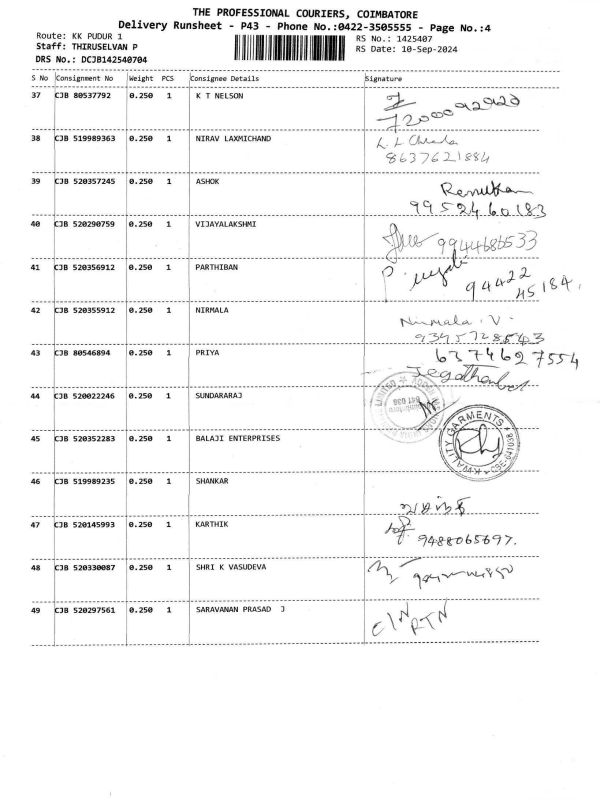 THE PROFESSIONAL COURIERS, COIMBATORE
Delivery Runsheet - P43 - Phone No.:0422-3505555 - Page No.:4
Route: KK PUDUR 1
RS No.: 1425407
Staff: THIRUSELVAN P
RS Date: 10-Sep-2024
DRS No.: DCJB142540704
S No Consignment No Weight PCS Consignee Details Signature
37 CJB 80537792 0.250 1 K T NELSON
7200092920
38 CJB 519989363 0.250 1 NIRAV LAXMICHAND
8637621884
39 CJB 520357245 0.250 1 ASHOK
Renuka
9952460183
40 CJB 520290759 0.250 1 VIJAYALAKSHMI
9944686533
41 CJB 520356912 0.250 1 PARTHIBAN
94422
45184.
42 CJB 520355912 0.250 1 NIRMALA
Nirmala . V.
9345728543
43 CJB 80546894 0.250 1 PRIYA
6374627554
44 CJB 520022246 0.250 1 SUNDARARAJ
45 CJB 520352283 0.250 1 BALAJI ENTERPRISES
KWALITY GARMENTS
CBE-641038
46 CJB 519989235 0.250 1 SHANKAR
47 CJB 520145993 0.250 1 KARTHIK
9488065697.
48 CJB 520330087 0.250 1 SHRI K VASUDEVA
49 CJB 520297561 0.250 1 SARAVANAN PRASAD J
C/N
RTN